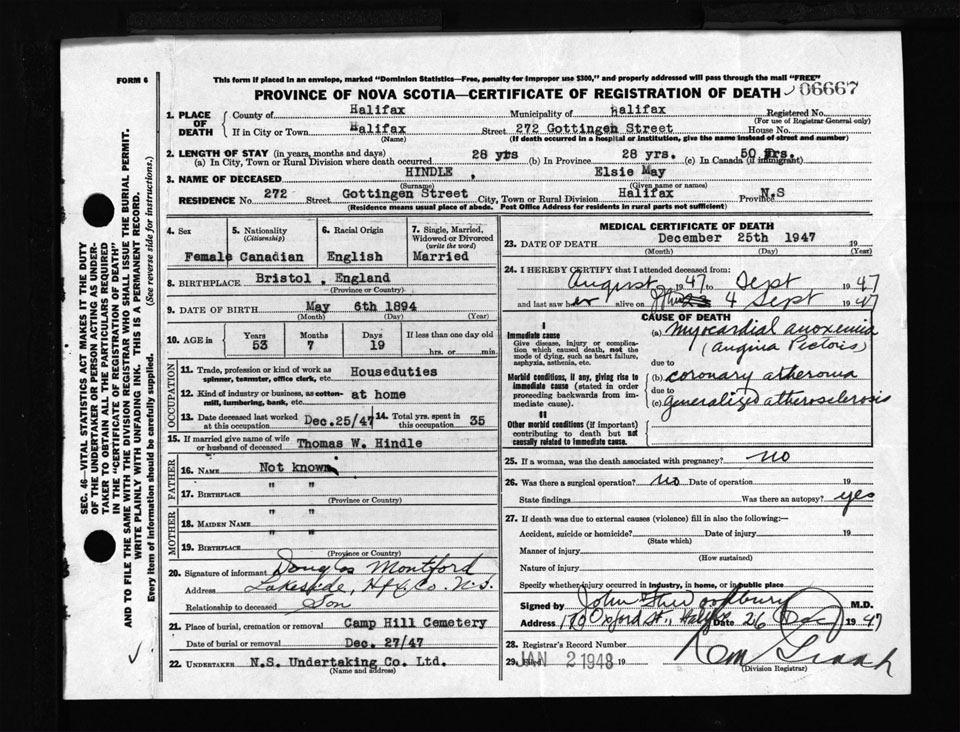 FORM 6
This form if placed in an envelope, marked "Dominion Statistics—Free, penalty for improper use $300," and properly addressed will pass through the mail "FREE"
PROVINCE OF NOVA SCOTIA—CERTIFICATE OF REGISTRATION OF DEATH
06667
1. PLACE OF DEATH
County of Halifax Municipality of Halifax Registered No.
(For use of Registrar General only)
If in City or Town Halifax Street 272 Gottingen Street House No.
(Name) (If death occurred in a hospital or institution, give the name instead of street and number)
2. LENGTH OF STAY (in years, months and days)
(a) In City, Town or Rural Division where death occurred 28 yrs (b) In Province 28 yrs. (c) In Canada (if immigrant) 50 yrs.
3. NAME OF DECEASED HINDLE , Elsie May
(Surname) (Given name or names)
RESIDENCE No. 272 Street Gottingen Street City, Town or Rural Division Halifax Province N.S
(Residence means usual place of abode. Post Office Address for residents in rural parts not sufficient)
4. Sex Female
5. Nationality (Citizenship) Canadian
6. Racial Origin English
7. Single, Married, Widowed or Divorced (write the word) Married
8. BIRTHPLACE Bristol , England
(Province or Country)
9. DATE OF BIRTH May 6th 1894
(Month) (Day) (Year)
10. AGE in Years 53 Months 7 Days 19 If less than one day old hrs. or min.
OCCUPATION
11. Trade, profession or kind of work as spinner, teamster, office clerk, etc. Houseduties
12. Kind of industry or business, as cotton-mill, lumbering, bank, etc. at home
13. Date deceased last worked at this occupation Dec.25/47
14. Total yrs. spent in this occupation 35
15. If married give name of wife or husband of deceased Thomas W. Hindle
FATHER
16. NAME Not known
17. BIRTHPLACE " "
(Province or Country)
MOTHER
18. MAIDEN NAME " "
19. BIRTHPLACE " "
(Province or Country)
20. Signature of informant Douglas Montford
Address Lakeside, Hfx. Co. N.S.
Relationship to deceased Son
21. Place of burial, cremation or removal Camp Hill Cemetery
Date of burial or removal Dec. 27/47
22. UNDERTAKER N.S. Undertaking Co. Ltd.
(Name and address)
MEDICAL CERTIFICATE OF DEATH
23. DATE OF DEATH December 25th 1947 19
(Month) (Day) (Year)
24. I HEREBY CERTIFY that I attended deceased from:
August 1947 to Sept 1947
and last saw her alive on 4 Sept 1947
CAUSE OF DEATH
I
Immediate cause
Give disease, injury or complication which caused death, not the mode of dying, such as heart failure, asphyxia, asthenia, etc.
(a) Myocardial anoxemia
(Angina Pectoris)
due to
Morbid conditions, if any, giving rise to immediate cause (stated in order proceeding backwards from immediate cause).
(b) coronary atheroma
due to
(c) generalized atherosclerosis
II
Other morbid conditions (if important) contributing to death but not causally related to immediate cause.
25. If a woman, was the death associated with pregnancy? no
26. Was there a surgical operation? no Date of operation 19
State findings Was there an autopsy? yes
27. If death was due to external causes (violence) fill in also the following:—
Accident, suicide or homicide? Date of injury 19
(State which)
Manner of injury
(How sustained)
Nature of injury
Specify whether injury occurred in industry, in home, or in public place
Signed by John Woodbury M.D.
Address Oxford St., Halifax Date 26 Dec 1947
28. Registrar's Record Number
29. Filed JAN 2 1948 19
(Division Registrar)
SEC. 46—VITAL STATISTICS ACT MAKES IT THE DUTY
OF THE UNDERTAKER OR PERSON ACTING AS UNDER-
TAKER TO OBTAIN ALL THE PARTICULARS REQUIRED
IN THE "CERTIFICATE OF REGISTRATION OF DEATH"
AND TO FILE THE SAME WITH THE DIVISION REGISTRAR WHO SHALL ISSUE THE BURIAL PERMIT.
WRITE PLAINLY WITH UNFADING INK. THIS IS A PERMANENT RECORD.
Every item of information should be carefully supplied. (See reverse side for instructions.)